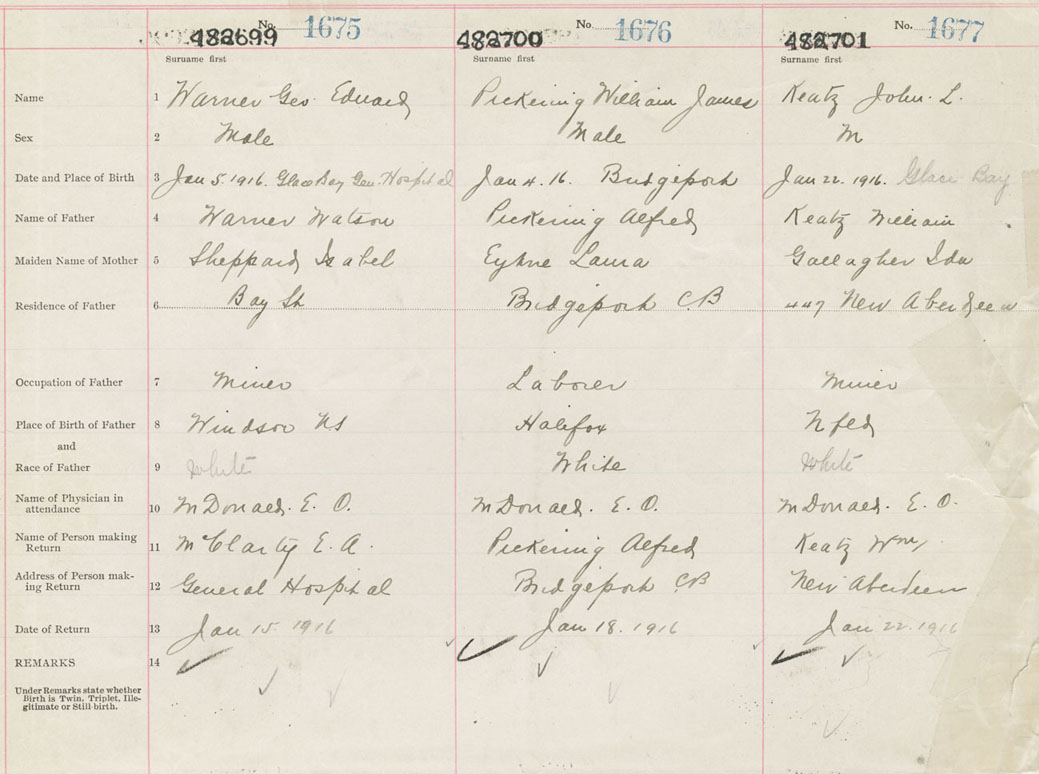 No. 1675 No. 1676 No. 1677
482699 482700 482701
Surname first Surname first Surname first
Name 1 Warner Geo. Edward Pickering William James Keatz John. L.
Sex 2 Male Male M
Date and Place of Birth 3 Jan 5. 1916. Glace Bay Gen. Hospital Jan 4. 16. Bridgeport Jan 22. 1916. Glace Bay
Name of Father 4 Warner Watson Pickering Alfred Keatz William
Maiden Name of Mother 5 Sheppard Isabel Laura Gallagher Ida
Residence of Father 6 Bay St Bridgeport C.B 447 New Aberdeen
Occupation of Father 7 Miner Laborer Miner
Place of Birth of Father 8 Windsor NS Halifax Nfld
and
Race of Father 9 White White White
Name of Physician in
attendance 10 McDonald. E. O. McDonald. E. O. McDonald. E. O.
Name of Person making
Return 11 McClarty E. A. Pickering Alfred Keatz Wm,
Address of Person mak-
ing Return 12 General Hospital Bridgeport CB New Aberdeen
Date of Return 13 Jan 15 1916 Jan 18. 1916 Jan 22. 1916
REMARKS 14
Under Remarks state whether
Birth is Twin. Triplet, Ille-
gitimate or Still-birth.